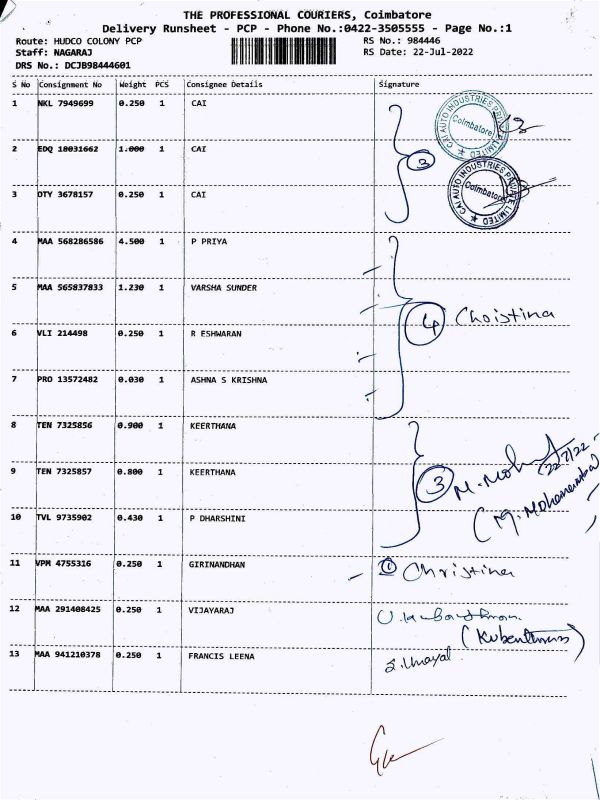 THE PROFESSIONAL COURIERS, Coimbatore
Delivery Runsheet - PCP - Phone No.:0422-3505555 - Page No.:1
Route: HUDCO COLONY PCP RS No.: 984446
Staff: NAGARAJ RS Date: 22-Jul-2022
DRS No.: DCJB98444601
S No Consignment No Weight PCS Consignee Details Signature
1 NKL 7949699 0.250 1 CAI
CAI AUTO INDUSTRIES PRIVATE LIMITED
Coimbatore
2 EDQ 18031662 1.000 1 CAI
3
CAI AUTO INDUSTRIES PRIVATE LIMITED
Coimbatore
3 OTY 3678157 0.250 1 CAI
4 MAA 568286586 4.500 1 P PRIYA
5 MAA 565837833 1.230 1 VARSHA SUNDER
4 Christina
6 VLI 214498 0.250 1 R ESHWARAN
7 PRO 13572482 0.030 1 ASHNA S KRISHNA
8 TEN 7325856 0.900 1 KEERTHANA
22/7/22
9 TEN 7325857 0.800 1 KEERTHANA
3 M.Moh
10 TVL 9735902 0.430 1 P DHARSHINI
11 VPM 4755316 0.250 1 GIRINANDHAN
1 Christina
12 MAA 291408425 0.250 1 VIJAYARAJ
13 MAA 941210378 0.250 1 FRANCIS LEENA
S.Umayal